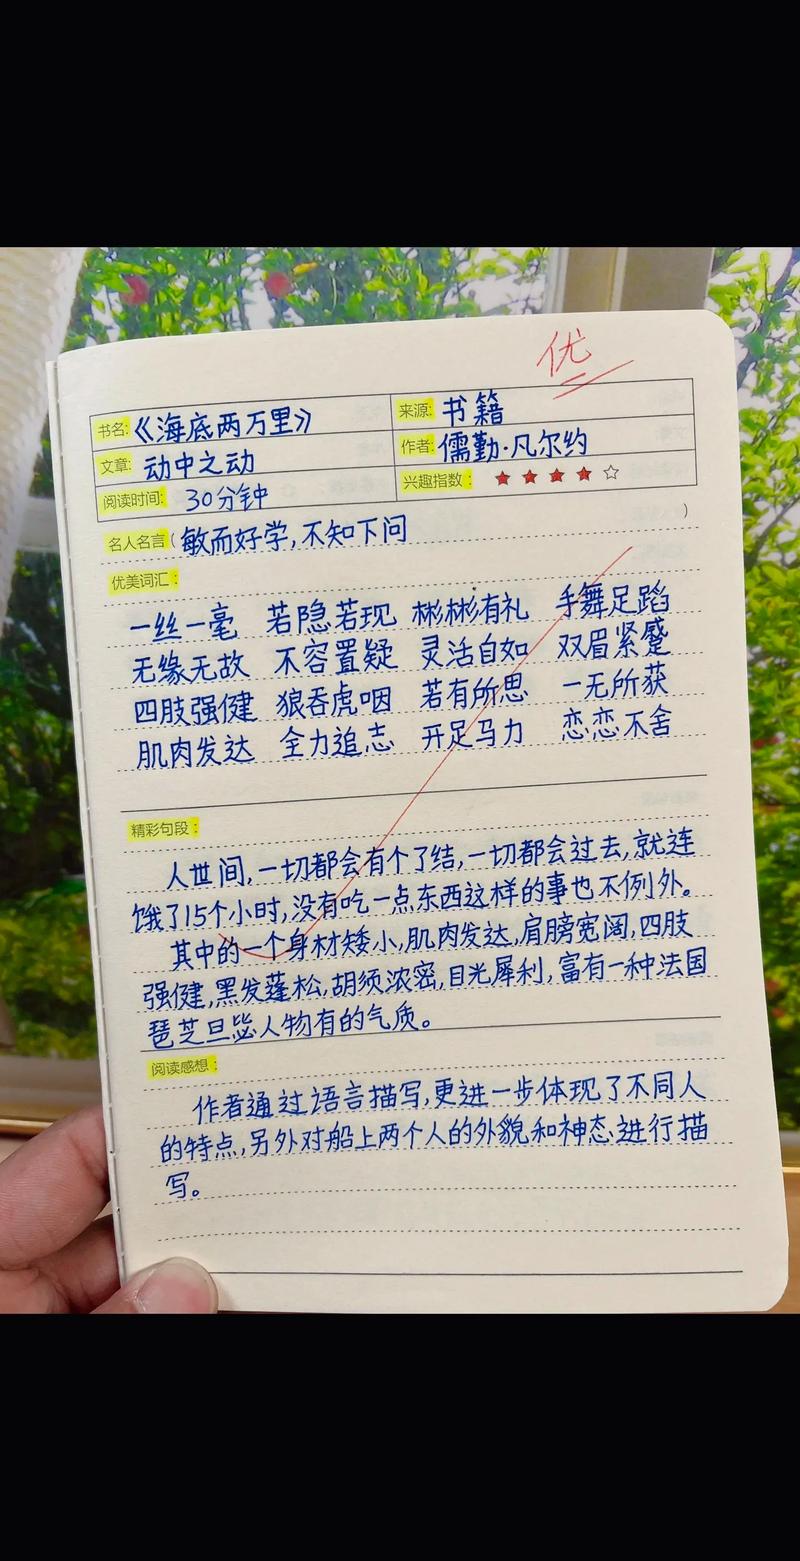 优
书名: 《海底两万里》 来源: 书籍
文章: 动中之动 作者: 儒勤·凡尔约
阅读时间: 30分钟 兴趣指数: ★★★★☆
名人名言(敏而好学,不知下问)
优美词汇:
一丝一毫 若隐若现 彬彬有礼 手舞足蹈
无缘无故 不容置疑 灵活自如 双眉紧蹙
四肢强健 狼吞虎咽 若有所思 一无所获
肌肉发达 全力追志 开足马力 恋恋不舍
精彩句段:
人世间,一切都会有个了结,一切都会过去,就连
饿了15个小时,没有吃一点东西这样的事也不例外。
其中的一个身材矮小,肌肉发达,肩膀宽阔,四肢
强健,黑发蓬松,胡须浓密,目光犀利,富有一种法国
琶芝旦毖人物有的气质。
阅读感想:
作者通过语言描写,更进一步体现了不同人
的特点,另外对船上两个人的外貌和神态进行描
写。